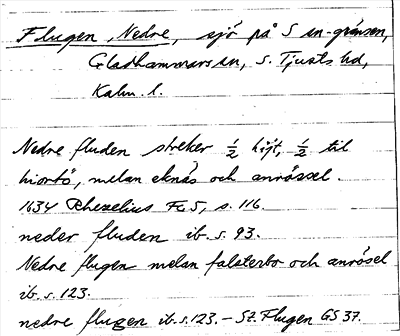 Flugen, Nedre, sjö på S sn-gränsen,
Gladhammars sn, S. Tjusts hd,
Kalm. l.
Nedre fluden streker ½ hijt, ½ til
hiortö, melan eknäs och anrössel.
1634 Rhezelius Fc5, s. 116.
neder fluden ib. s. 93.
Nedre flugen melan falsterbo och anrösel
ib. s. 123.
nedre flugen ib. s. 123. – Se Flugen GS 37.